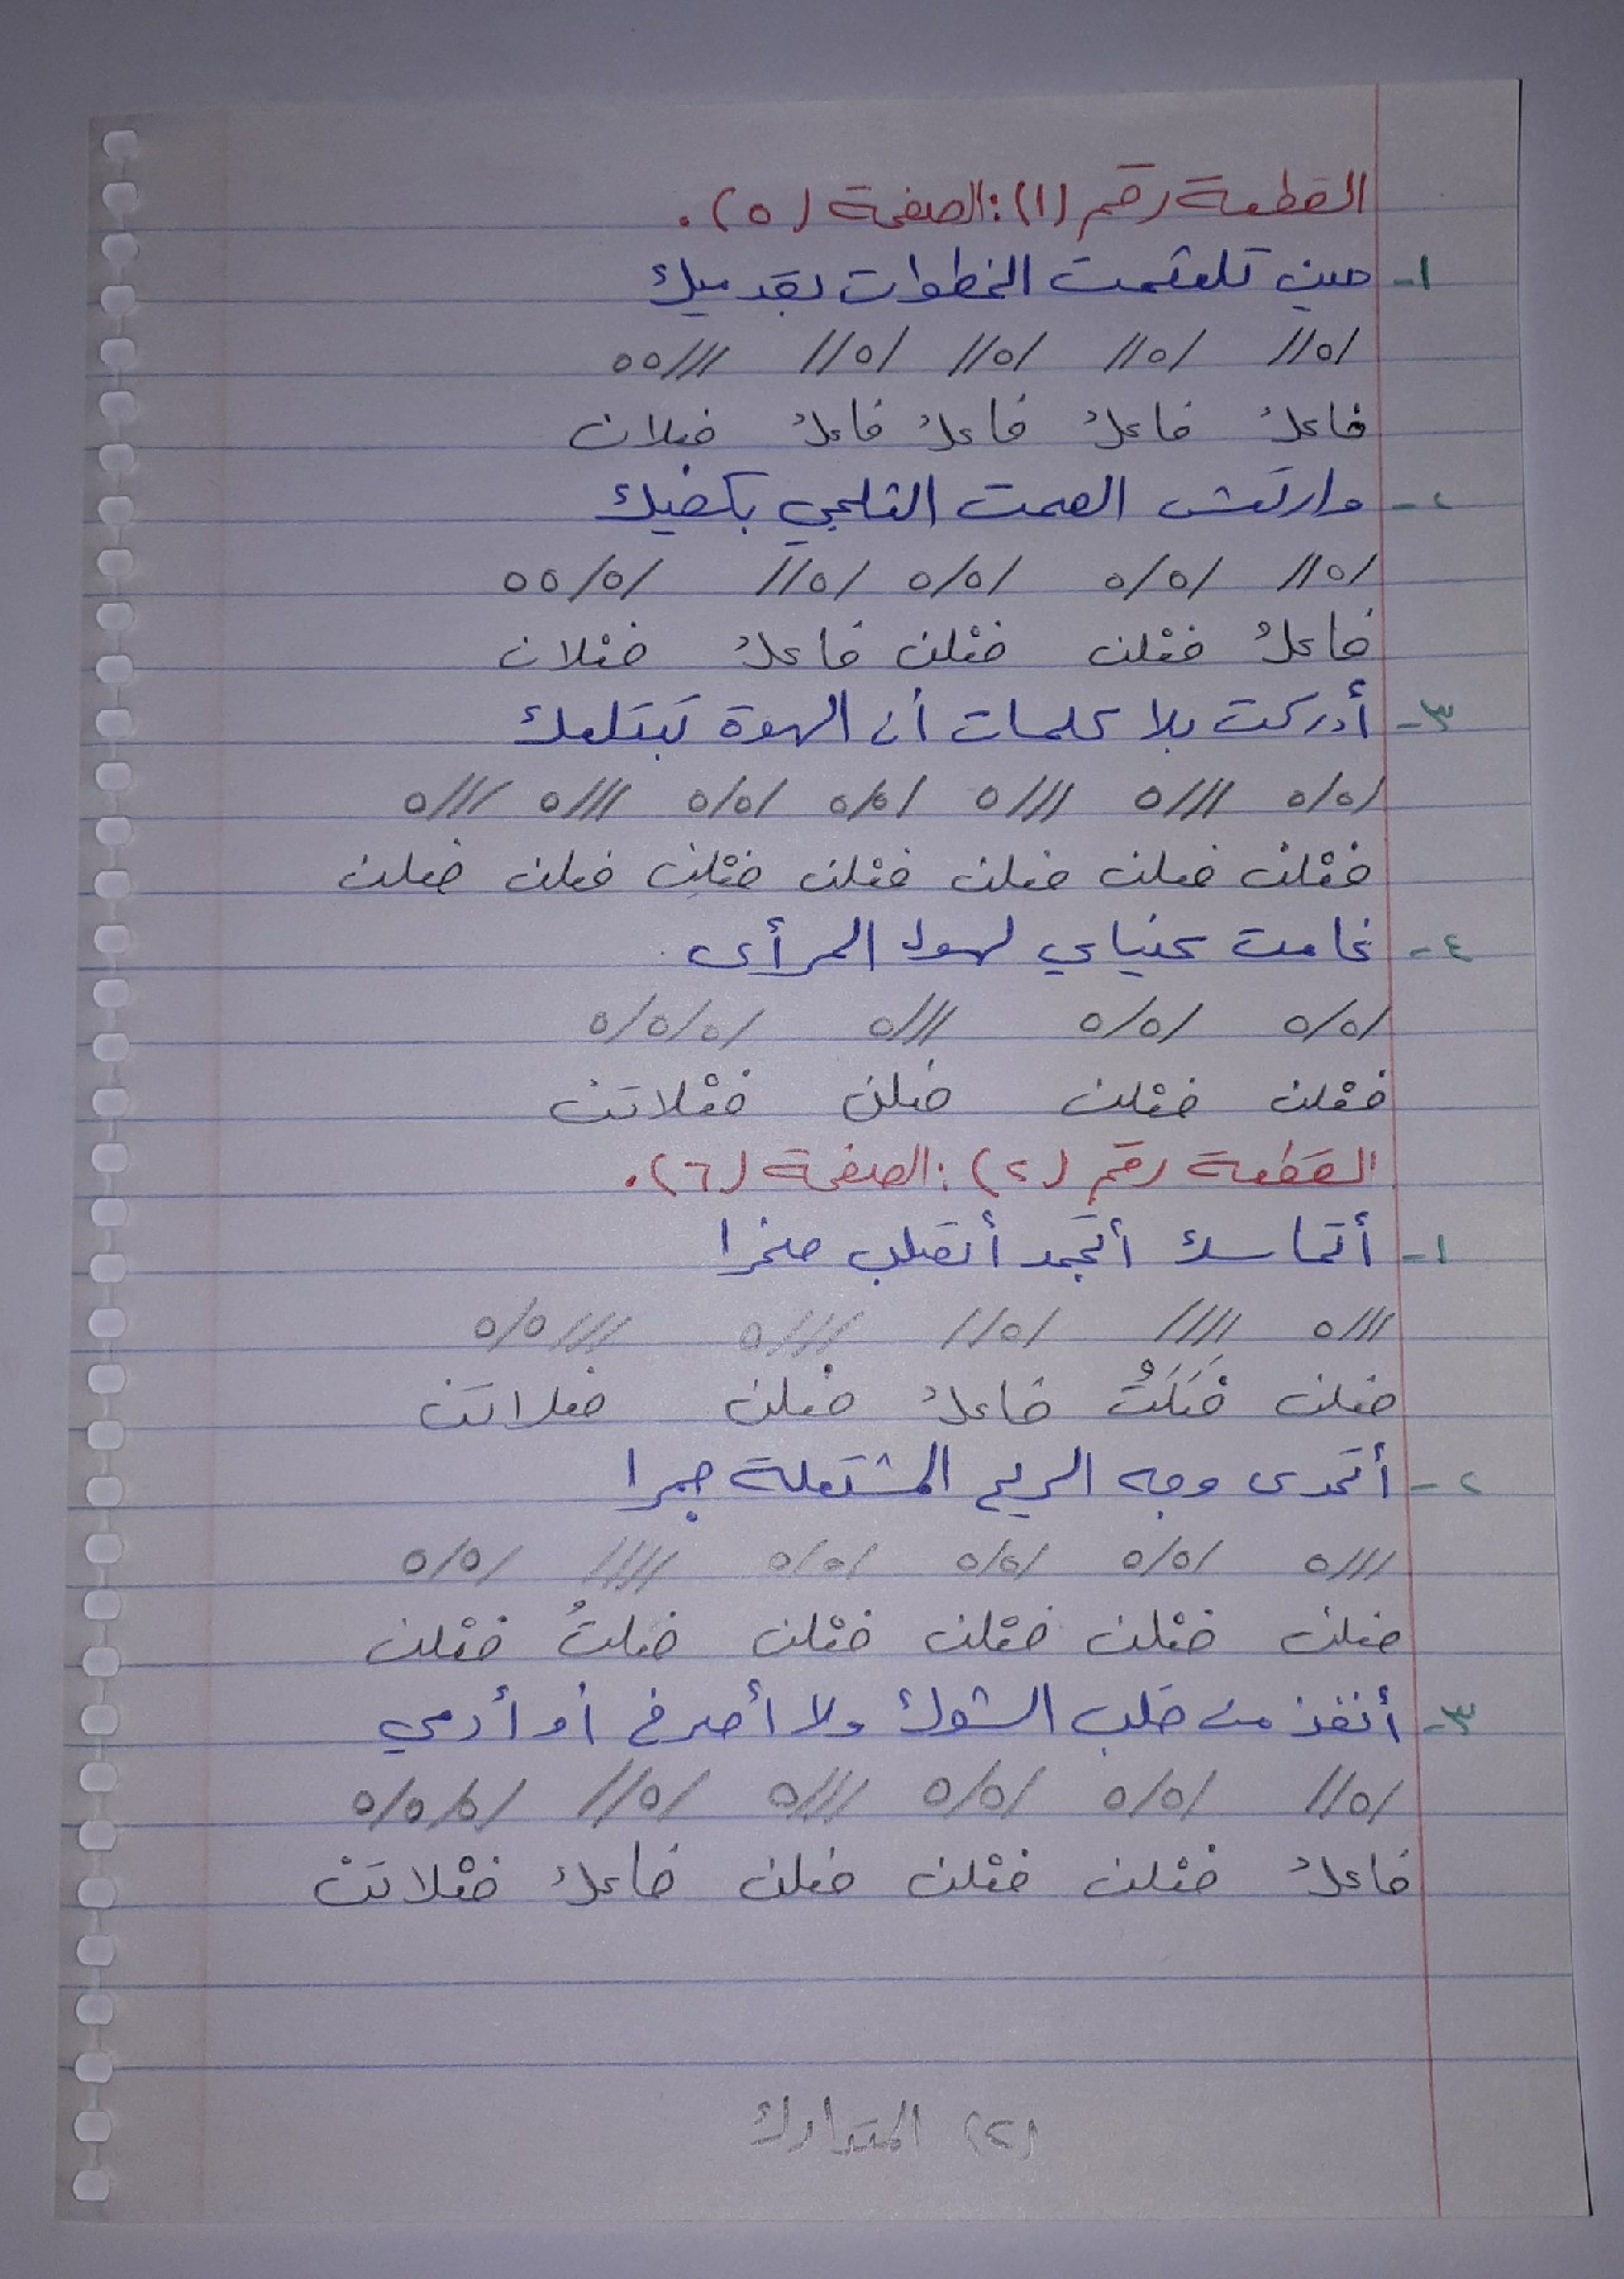 القطعة رقم (١): الصفحة (٥).
١- حين تلعثمت الخطوات بقدميك
/٥// /٥// /٥// /٥// ///٥٥
فاعلُ فاعلُ فاعلُ فاعلُ فعلان
٢- وارتعش الصمت الثلجي بكفيك
/٥// /٥/٥ /٥/٥ /٥// /٥/٥٥
فاعلُ فعْلن فعْلن فاعلُ فعْلان
٣- أدركت بلا كلمات أن الهوة تبتلعك
/٥/٥ ///٥ ///٥ /٥/٥ /٥/٥ ///٥ ///٥
فعْلن فعلن فعلن فعْلن فعْلن فعلن فعلن
٤- غامت عيناي لهول المرأى.
/٥/٥ /٥/٥ ///٥ /٥/٥/٥
فعْلن فعْلن فعلن فعْلاتن
القطعة رقم (٢): الصفحة (٦).
١- أتماسك أتجمد أنقلب صخرا
///٥ //// /٥// ///٥ ///٥/٥
فعلن فَعَلَتُ فاعلُ فعلن فعلاتن
٢- أتحدى وجه الريح المشتعلة جمرا
///٥ /٥/٥ /٥/٥ /٥/٥ //// /٥/٥
فعلن فعْلن فعْلن فعْلن فعلتُ فعْلن
٣- أنفذ من قلب الشوك ولا أصرخ أو أدمي
/٥// /٥/٥ /٥/٥ ///٥ /٥// /٥/٥/٥
فاعلُ فعْلن فعْلن فعلن فاعلُ فعْلاتنْ
(٢) المتدارك